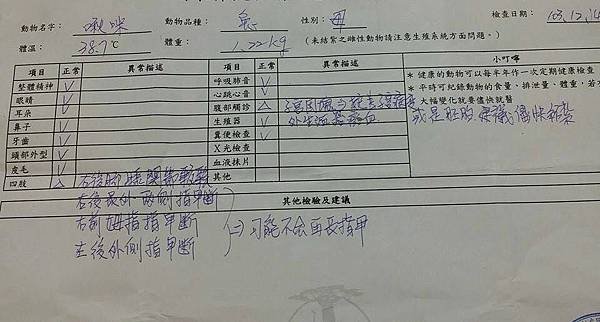 動物名字： 啾咪 動物品種： 兔 性別： 母 檢查日期： 103,12,14
體溫： 38.7℃ 體重： 1.22kg (未結紮之雌性動物請注意生殖系統方面問題。)
項目 正常 異常描述 項目 正常 異常描述 小叮嚀
整體精神 V 呼吸肺音 V * 健康的動物可以每半年作一次定期健康檢查
眼睛 V 心跳心音 V * 平時可紀錄動物的食量、排泄量、體重，若有
耳朵 V 腹部觸診 △ 大幅變化就要儘快就醫
鼻子 V 生殖器 V
牙齒 V 糞便檢查 V
頭部外型 V X光檢查
皮毛 V 血液抹片
四肢 △ 右後腳 其他
右後最外兩側指甲斷
其他檢驗及建議
右前姆指指甲斷 ⇒可能不會再長指甲
左後外側指甲斷